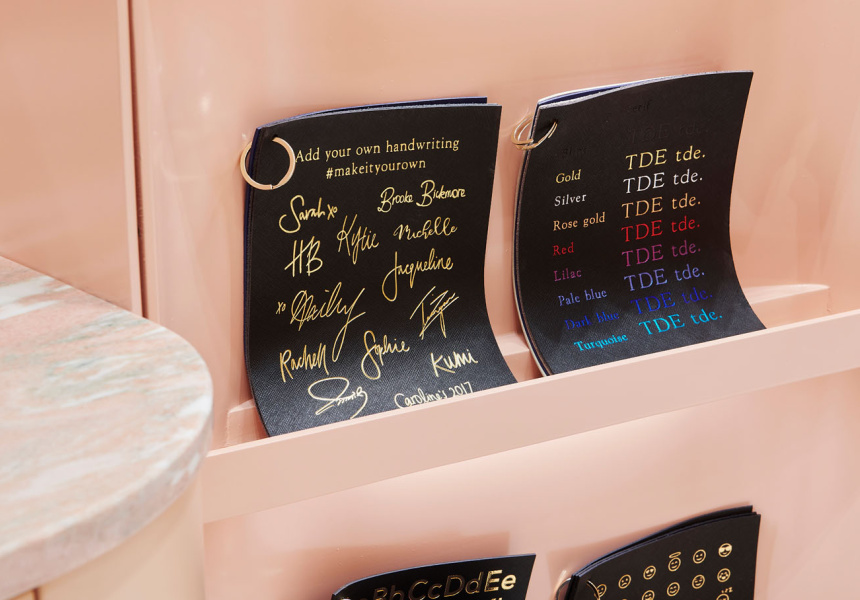 Add your own handwriting
#makeityourown
Sarah xo
Brooke Bickmore
HB
Kytie
Michelle
Jacqueline
xo
Rachell
Sophie
Kumi
Caroline's 2017
Gold TDE tde.
Silver TDE tde.
Rose gold TDE tde.
Red TDE tde.
Lilac TDE tde.
Pale blue TDE tde.
Dark blue TDE tde.
Turquoise TDE tde.
BbCcDdEe